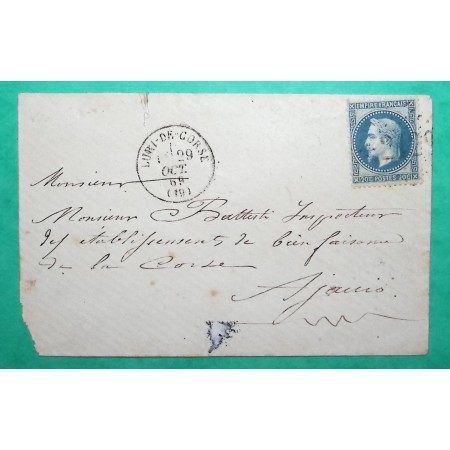 EMPIRE FRANÇAIS
20c POSTES 20c
LURI-DE-CORSE
29
OCT.
69
(19)
Monsieur
Monsieur Battesti Inspecteur
des établissements de bienfaisance
de la Corse
Ajaccio.